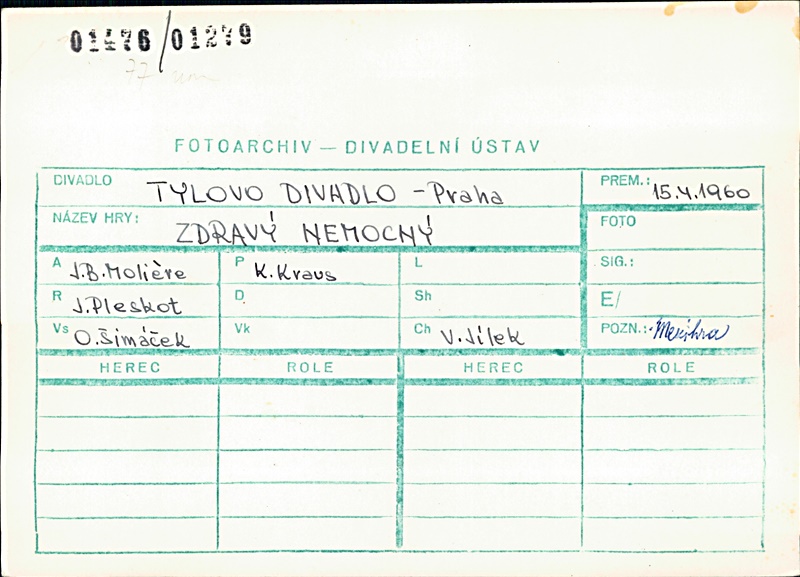 01476/01279
77
FOTOARCHIV — DIVADELNÍ ÚSTAV
DIVADLO TYLOVO DIVADLO - Praha PREM.: 15.4.1960
NÁZEV HRY: ZDRAVÝ NEMOCNÝ FOTO
A J.B.Molière P K.Kraus L SIG.:
R J.Pleskot D Sh E/
Vs O.Šimáček Vk Ch V.Jílek POZN.:
HEREC ROLE HEREC ROLE